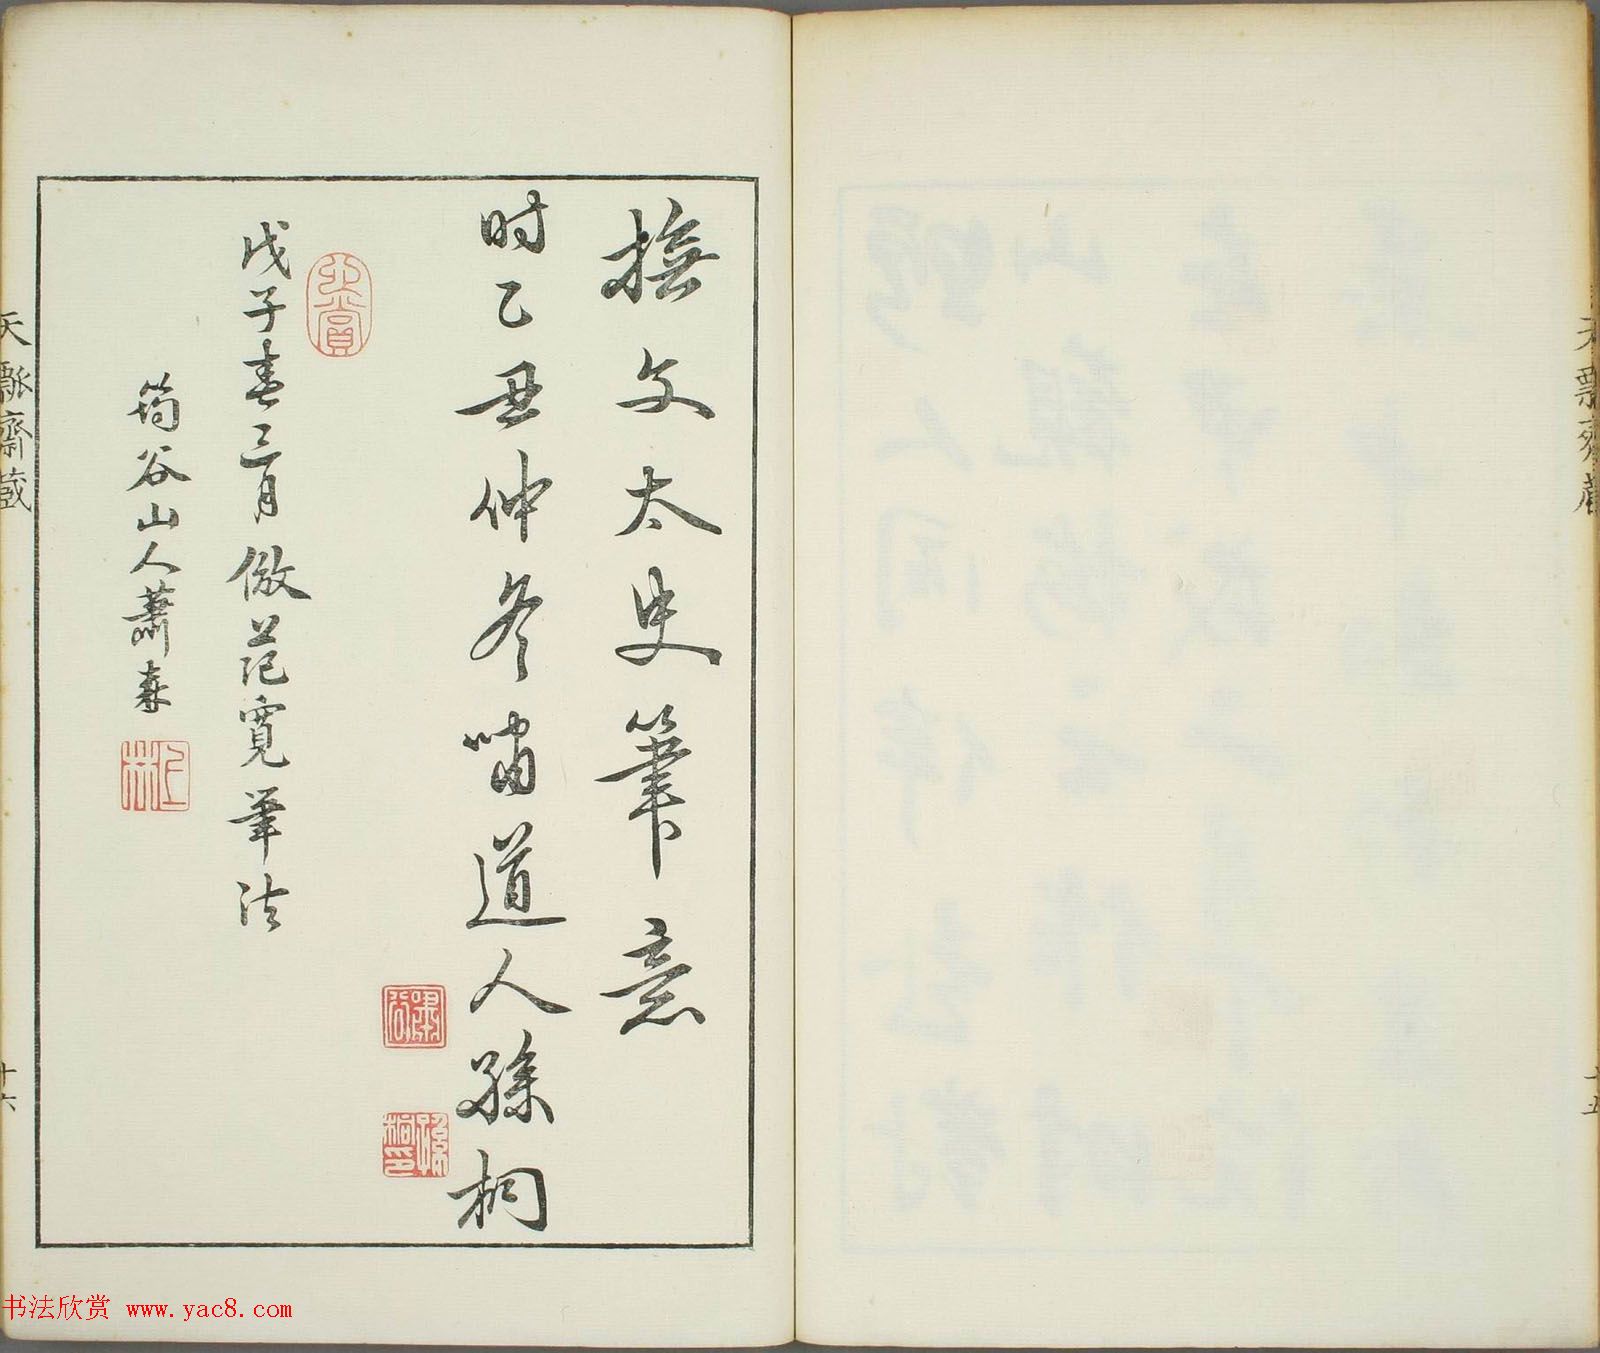 撫文太史筆意
时乙丑仲冬啸道人孫桐
戊子春三月倣范寬筆法
筠谷山人蕭森
天瓢齋藏
十六
天瓢齋藏
十五
书法欣赏 www.yac8.com